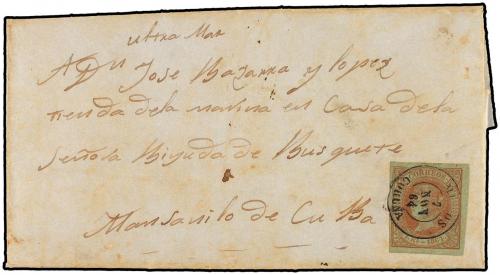 ultra Mar
A Dn Jose Bazarra y lopez
tienda dela marina en Casa dela
Señora Biyuda de Busquete
Mansanilo de Cuba
CORREOS
7
NOV
64